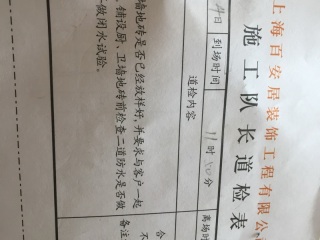 上海百安居装饰工程有限公
施工队长道检表
日 到场时间 11时 分 离场时
道检内容
备注
墙地砖是否已经放样好,并要求与客户一起
铺设厨、卫墙地砖前检查二道防水是否做
做闭水试验。
合
不